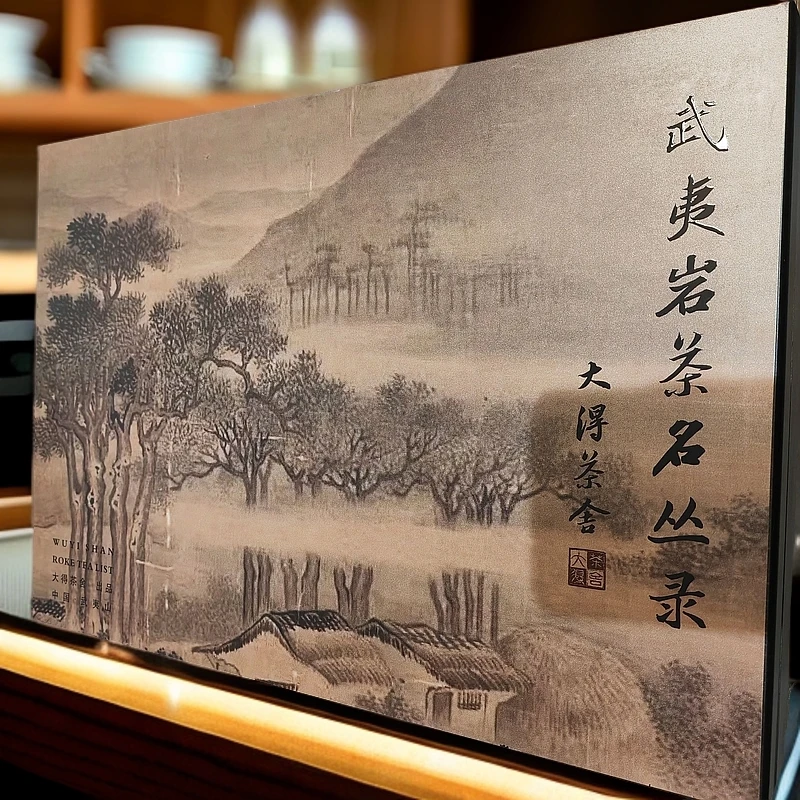 武夷岩茶名丛录
大得茶舍
茶舍
大得
WUYI SHAN
ROKETEALIST
大得茶舍 出品
中国 武夷山